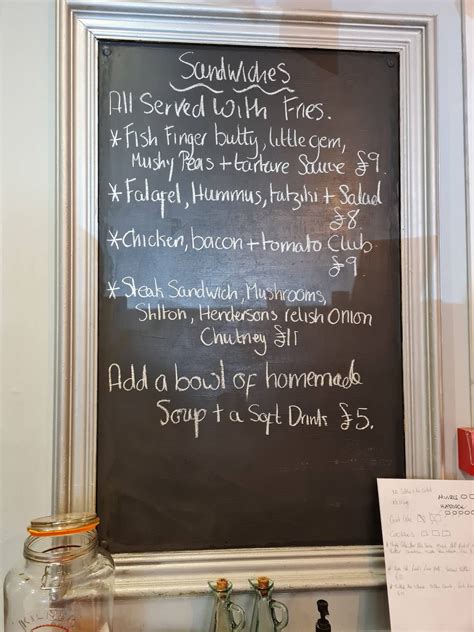 Sandwiches
All Served With Fries.
*Fish Finger butty, little gem,
Mushy Peas + tartare Sauce £9.
*Falafel, Hummus, tatziki + Salad
£8.
*Chicken, bacon + tomato Club
£9.
*Steak Sandwich, Mushrooms,
Stilton, Hendersons relish Onion
Chutney £11
Add a bowl of homemade
Soup + a Soft Drink £5.
KILNER